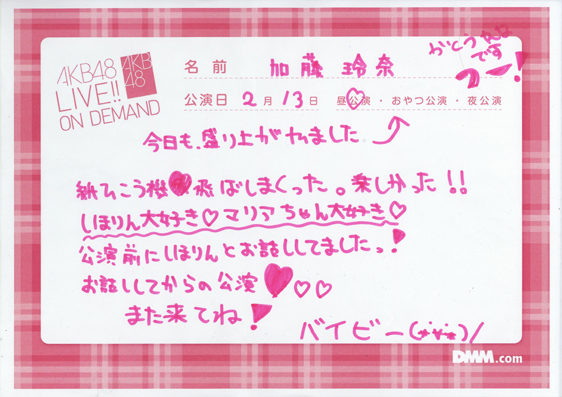 AKB48
LIVE!!
ON DEMAND
AKB
48
名前 加藤 玲奈
です
公演日 2月13日 昼公演・おやつ公演・夜公演
今日も、盛り上がりました
紙ひこう機 飛ばしまくった。楽しかった!!
しほりん大好き♡マリアちゃん大好き♡
公演前にしほりんとお話ししてました。!
お話ししてからの公演♥♡♡
また来てね!
バイビー
DMM.com